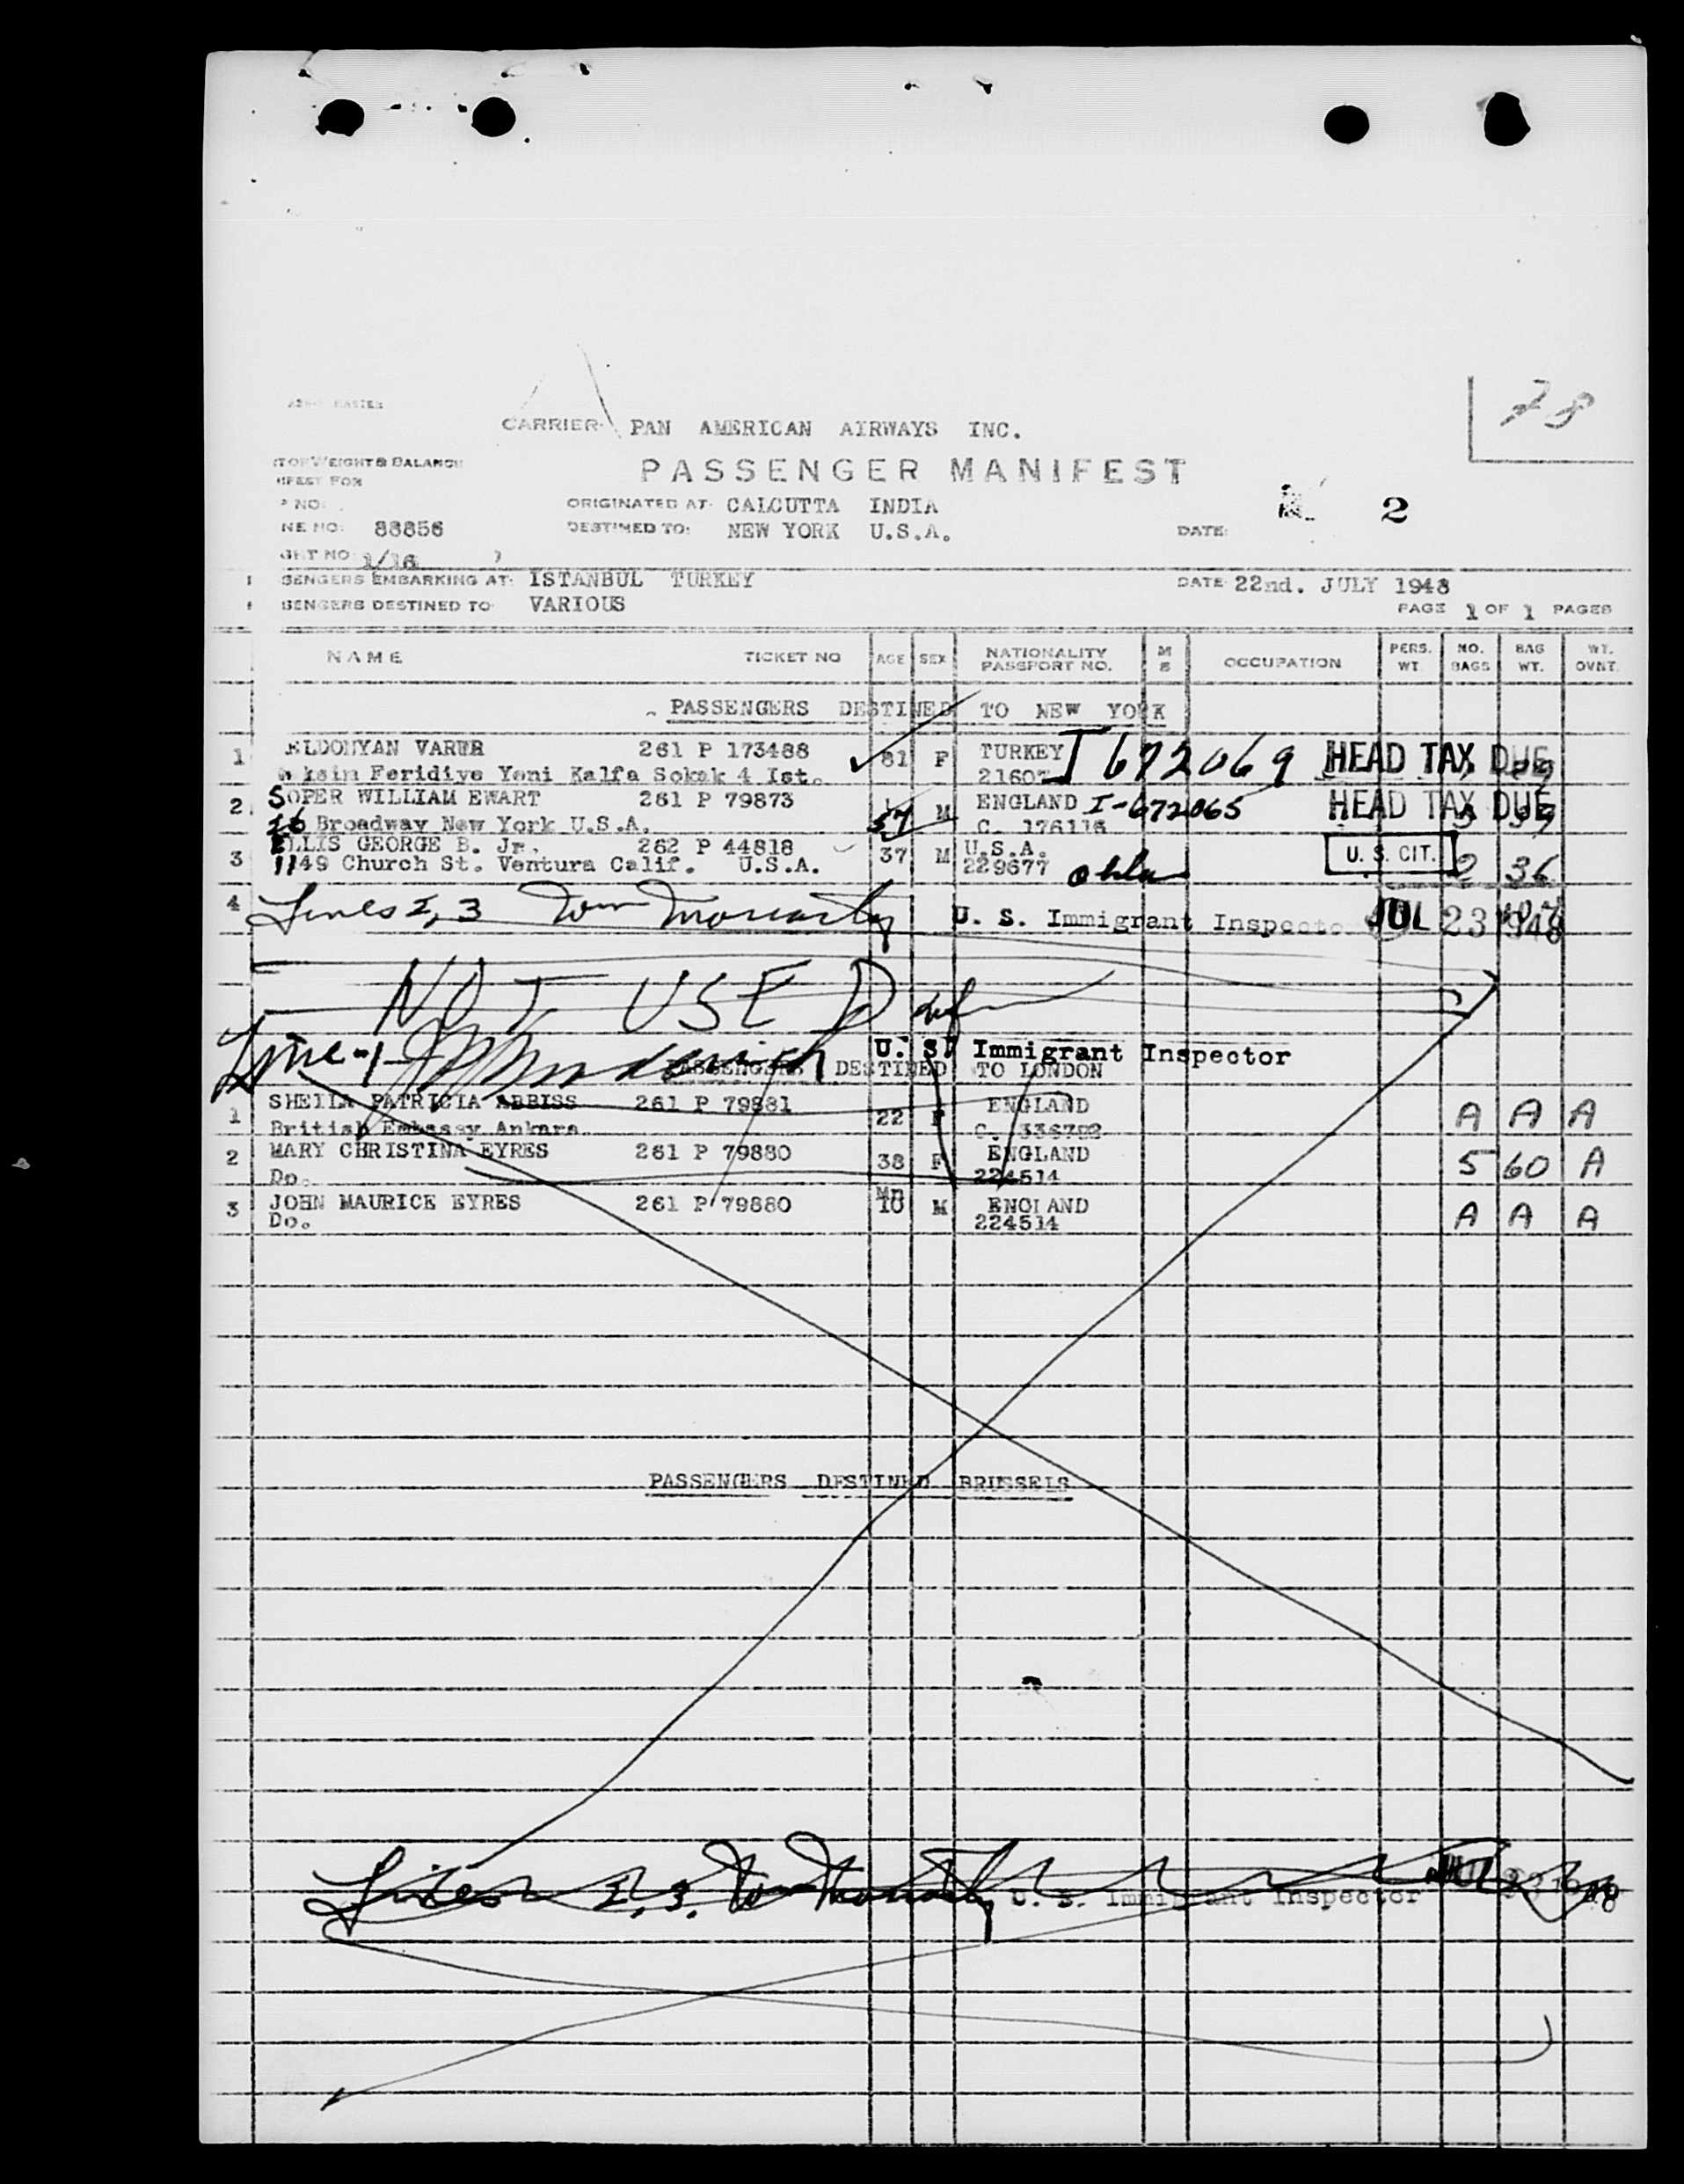 78
CARRIER: PAN AMERICAN AIRWAYS INC.
WEIGHT & BALANCE
PASSENGER MANIFEST
NO:
ORIGINATED AT: CALCUTTA INDIA
2
NE NO: 88856
DESTINED TO: NEW YORK U.S.A.
DATE:
GHT NO 1/16
SENGERS EMBARKING AT: ISTANBUL TURKEY
DATE 22nd. JULY 1948
SENGERS DESTINED TO VARIOUS
PAGE 1 OF 1 PAGES
NAME TICKET NO AGE SEX NATIONALITY PASSPORT NO. M S OCCUPATION PERS. WT. NO. BAGS BAG WT. WT. OVNT.
PASSENGERS DESTINED TO NEW YORK
1 ELDONYAN 261 P 173488 81 F TURKEY I 672069 HEAD TAX DUE
Feridiye Yeni Kalfa Sokak 4 Ist. 21607
2 SOPER WILLIAM EWART 261 P 79873 57 M ENGLAND I-672065 HEAD TAX DUE
26 Broadway New York U.S.A. C. 176116
3 ELLIS GEORGE B. Jr. 262 P 44818 37 M U.S.A. U. S. CIT. 2 36
1149 Church St. Ventura Calif. U.S.A. 229677
4 Lines 2, 3 Tom Moriarty U. S. Immigrant Inspector JUL 23 1948
NOT USED
Line-1 U. S. Immigrant Inspector
PASSENGERS DESTINED TO LONDON
1 SHEILA PATRICIA ABBISS 261 P 79881 22 F ENGLAND A A A
British Embassy Ankara C.
2 MARY CHRISTINA EYRES 261 P 79880 38 F ENGLAND 5 60 A
Do. 224514
3 JOHN MAURICE EYRES 261 P 79880 10 M ENGLAND A A A
Do. 224514
PASSENGERS DESTINED BRUSSELS
Lines 2, 3. Tom Moriarty U. S. Immigrant Inspector